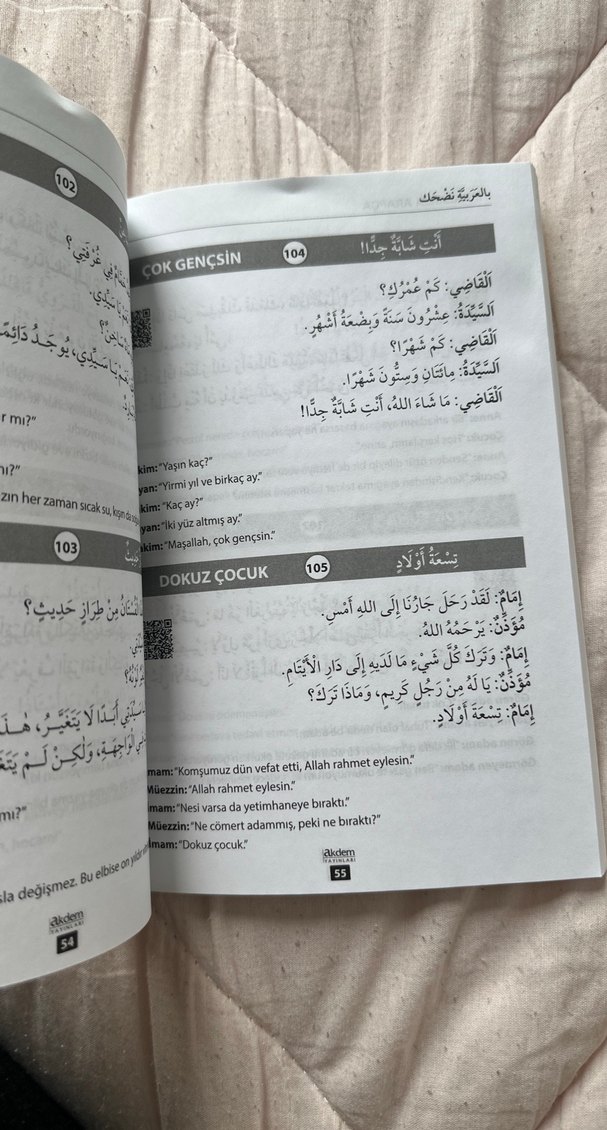 102
غُرْفَتِي؟
سَيِّدِي.
يَا سَيِّدِي، يُوجَدُ دَائِمًا
mı?”
zın her zaman sıcak su, kışın da
103
مِنْ طِرَازٍ حَدِيثٍ؟
أَبَدًا لَا يَتَغَيَّرُ، هٰذَا
الْوَاجِهَةِ، وَلٰكِنْ لَمْ
mı?”
değişmez. Bu elbise on yıldır
akdem
YAYINLARI
54
بِالعَرَبِيَّةِ نَضْحَك
ÇOK GENÇSİN 104 أَنْتِ شَابَّةٌ جِدًّا!
اَلْقَاضِي: كَمْ عُمْرُكِ؟
اَلسَّيِّدَةُ: عِشْرُونَ سَنَةً وَبِضْعَةُ أَشْهُرٍ.
اَلْقَاضِي: كَمْ شَهْرًا؟
اَلسَّيِّدَةُ: مِائَتَانِ وَسِتُّونَ شَهْرًا.
اَلْقَاضِي: مَا شَاءَ اللهُ، أَنْتِ شَابَّةٌ جِدًّا!
kim: “Yaşın kaç?”
yan: “Yirmi yıl ve birkaç ay.”
kim: “Kaç ay?”
yan: “İki yüz altmış ay.”
akim: “Maşallah, çok gençsin.”
DOKUZ ÇOCUK 105 تِسْعَةُ أَوْلَادٍ
إِمَامٌ: لَقَدْ رَحَلَ جَارُنَا إِلَى اللهِ أَمْسِ.
مُؤَذِّنٌ: يَرْحَمُهُ اللهُ.
إِمَامٌ: وَتَرَكَ كُلَّ شَيْءٍ مَا لَدَيْهِ إِلَى دَارِ الْأَيْتَامِ.
مُؤَذِّنٌ: يَا لَهُ مِنْ رَجُلٍ كَرِيمٍ، وَمَاذَا تَرَكَ؟
إِمَامٌ: تِسْعَةَ أَوْلَادٍ.
mam: “Komşumuz dün vefat etti, Allah rahmet eylesin.”
Müezzin: “Allah rahmet eylesin.”
mam: “Nesi varsa da yetimhaneye bıraktı.”
Müezzin: “Ne cömert adammış, peki ne bıraktı?”
İmam: “Dokuz çocuk.”
akdem
YAYINLARI
55